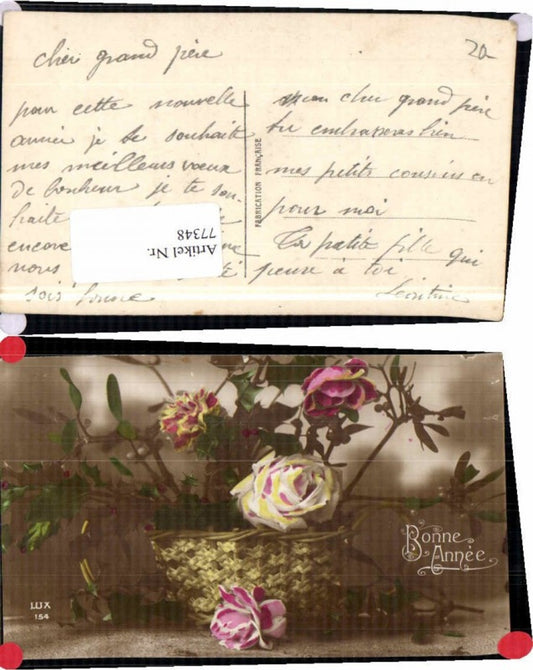 20-
cher grand père
pour cette nouvelle
année je te souhaite
mes meilleurs voeux
de bonheur je te sou-
haite
encore
nous
sois bonne
FABRICATION FRANÇAISE
Artikel Nr.
77348
mon cher grand père
tu embrasseras bien
mes petits cousins
pour moi
Ta petite fille qui
pense à toi
Léontine
Bonne
Année
LUX
154